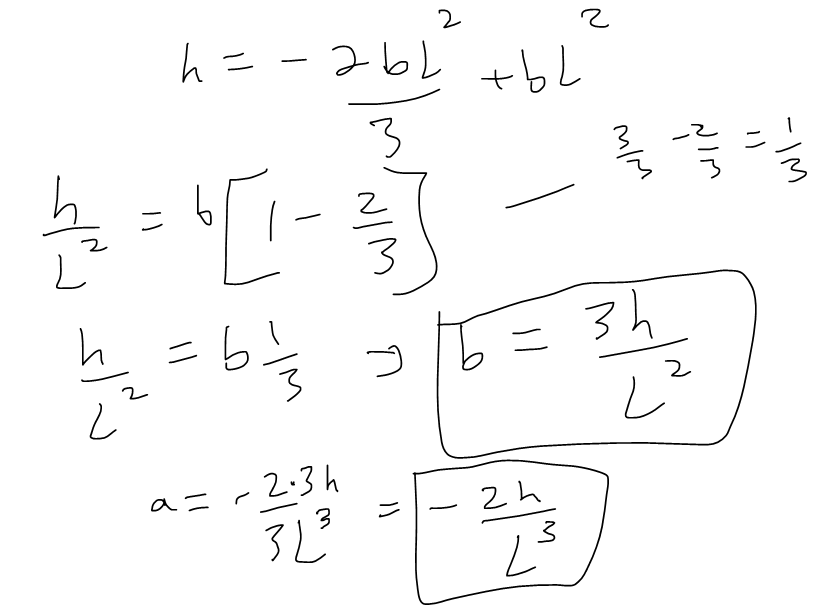 h = - 2bL²/3 + bL²
3/3 - 2/3 = 1/3
h/L² = b[1 - 2/3] —
h/L² = b 1/3 → b = 3h/L²
a = - 2·3h/3L³ = - 2h/L³